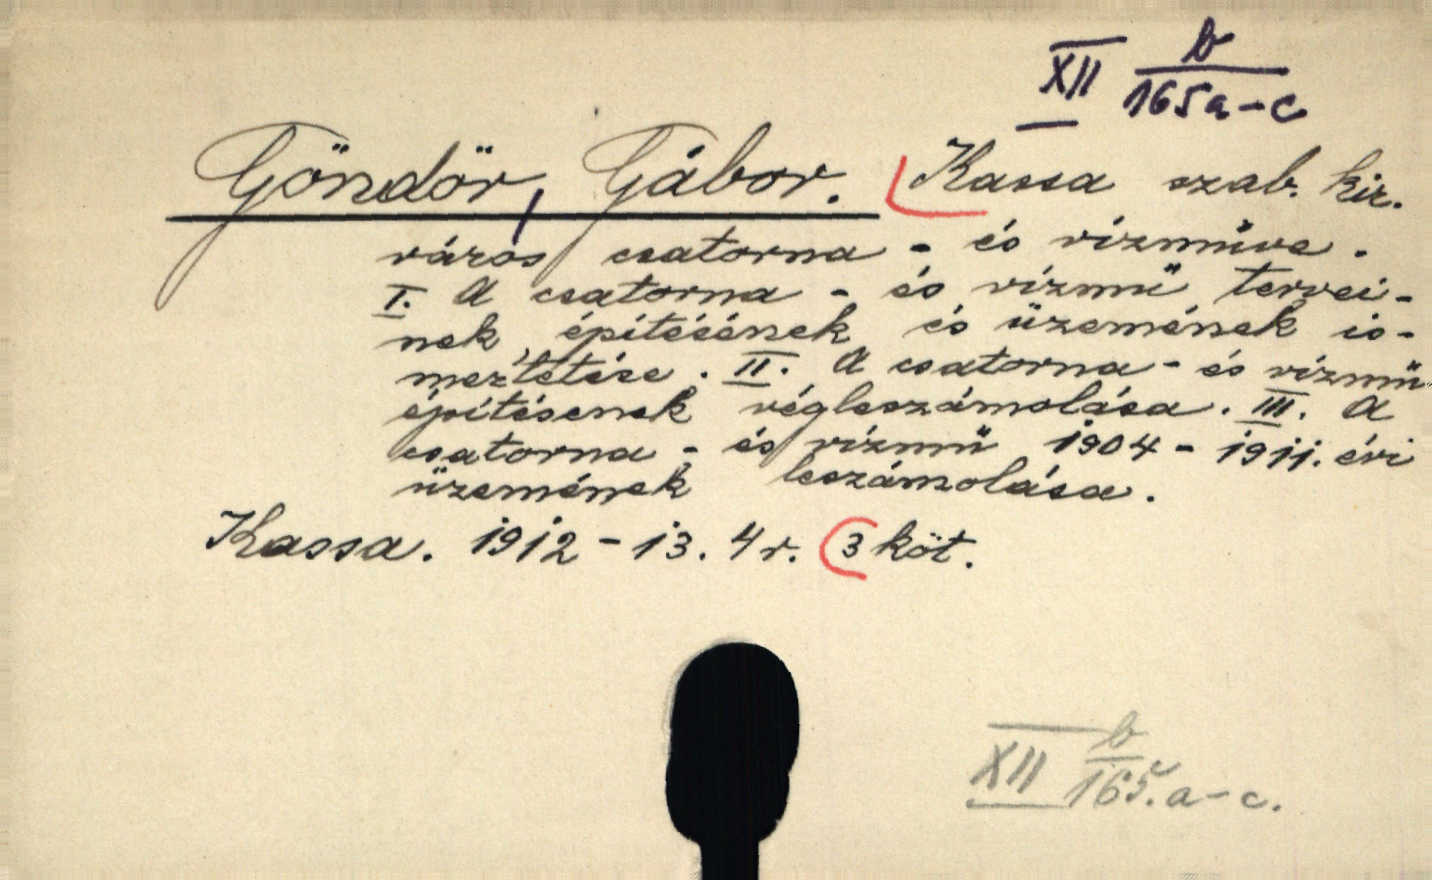 XII b/165a-c
Göndör, Gábor. Kassa szab. kir.
város csatorna - és vízműve.
I. A csatorna - és vízmű tervei-
nek, építésének és üzemének is-
meztetése. II. A csatorna - és vízmű
építésenek végleszámolása. III. A
csatorna - és vízmű 1904 - 1911. évi
üzemének leszámolása.
Kassa. 1912 - 13. 4r. 3 köt.
XII b/165. a-c.